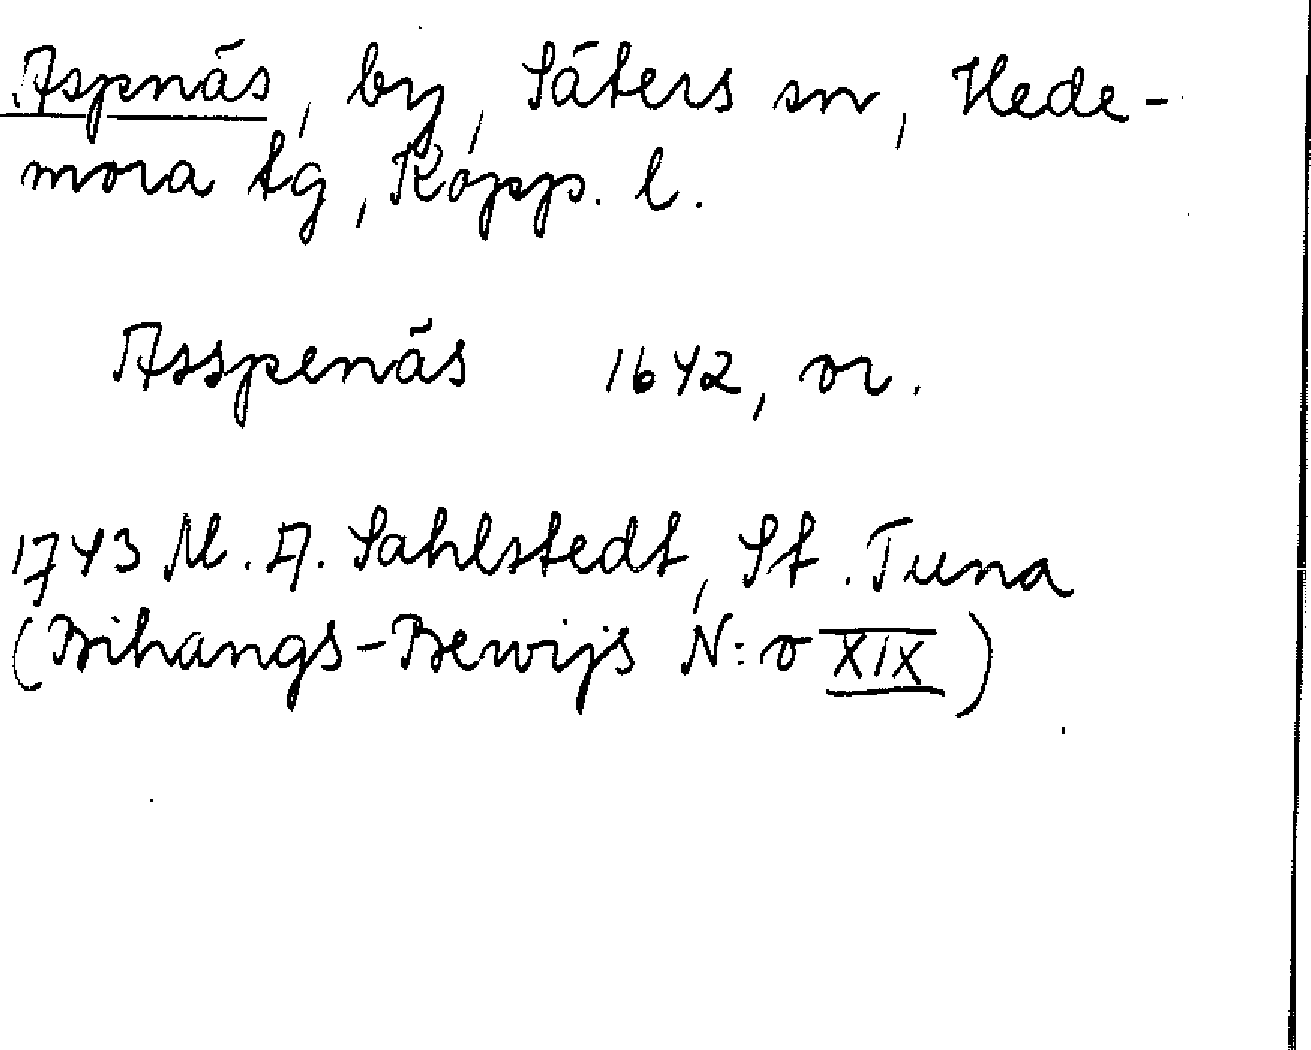 Aspnäs, by, Säters sn, Hede-
mora tg, Kopp. l.
Asspenäs 1642, or.
1743 M. A. Sahlstedt, St. Tuna
(Bihangs-Bewijs N:o XIX)